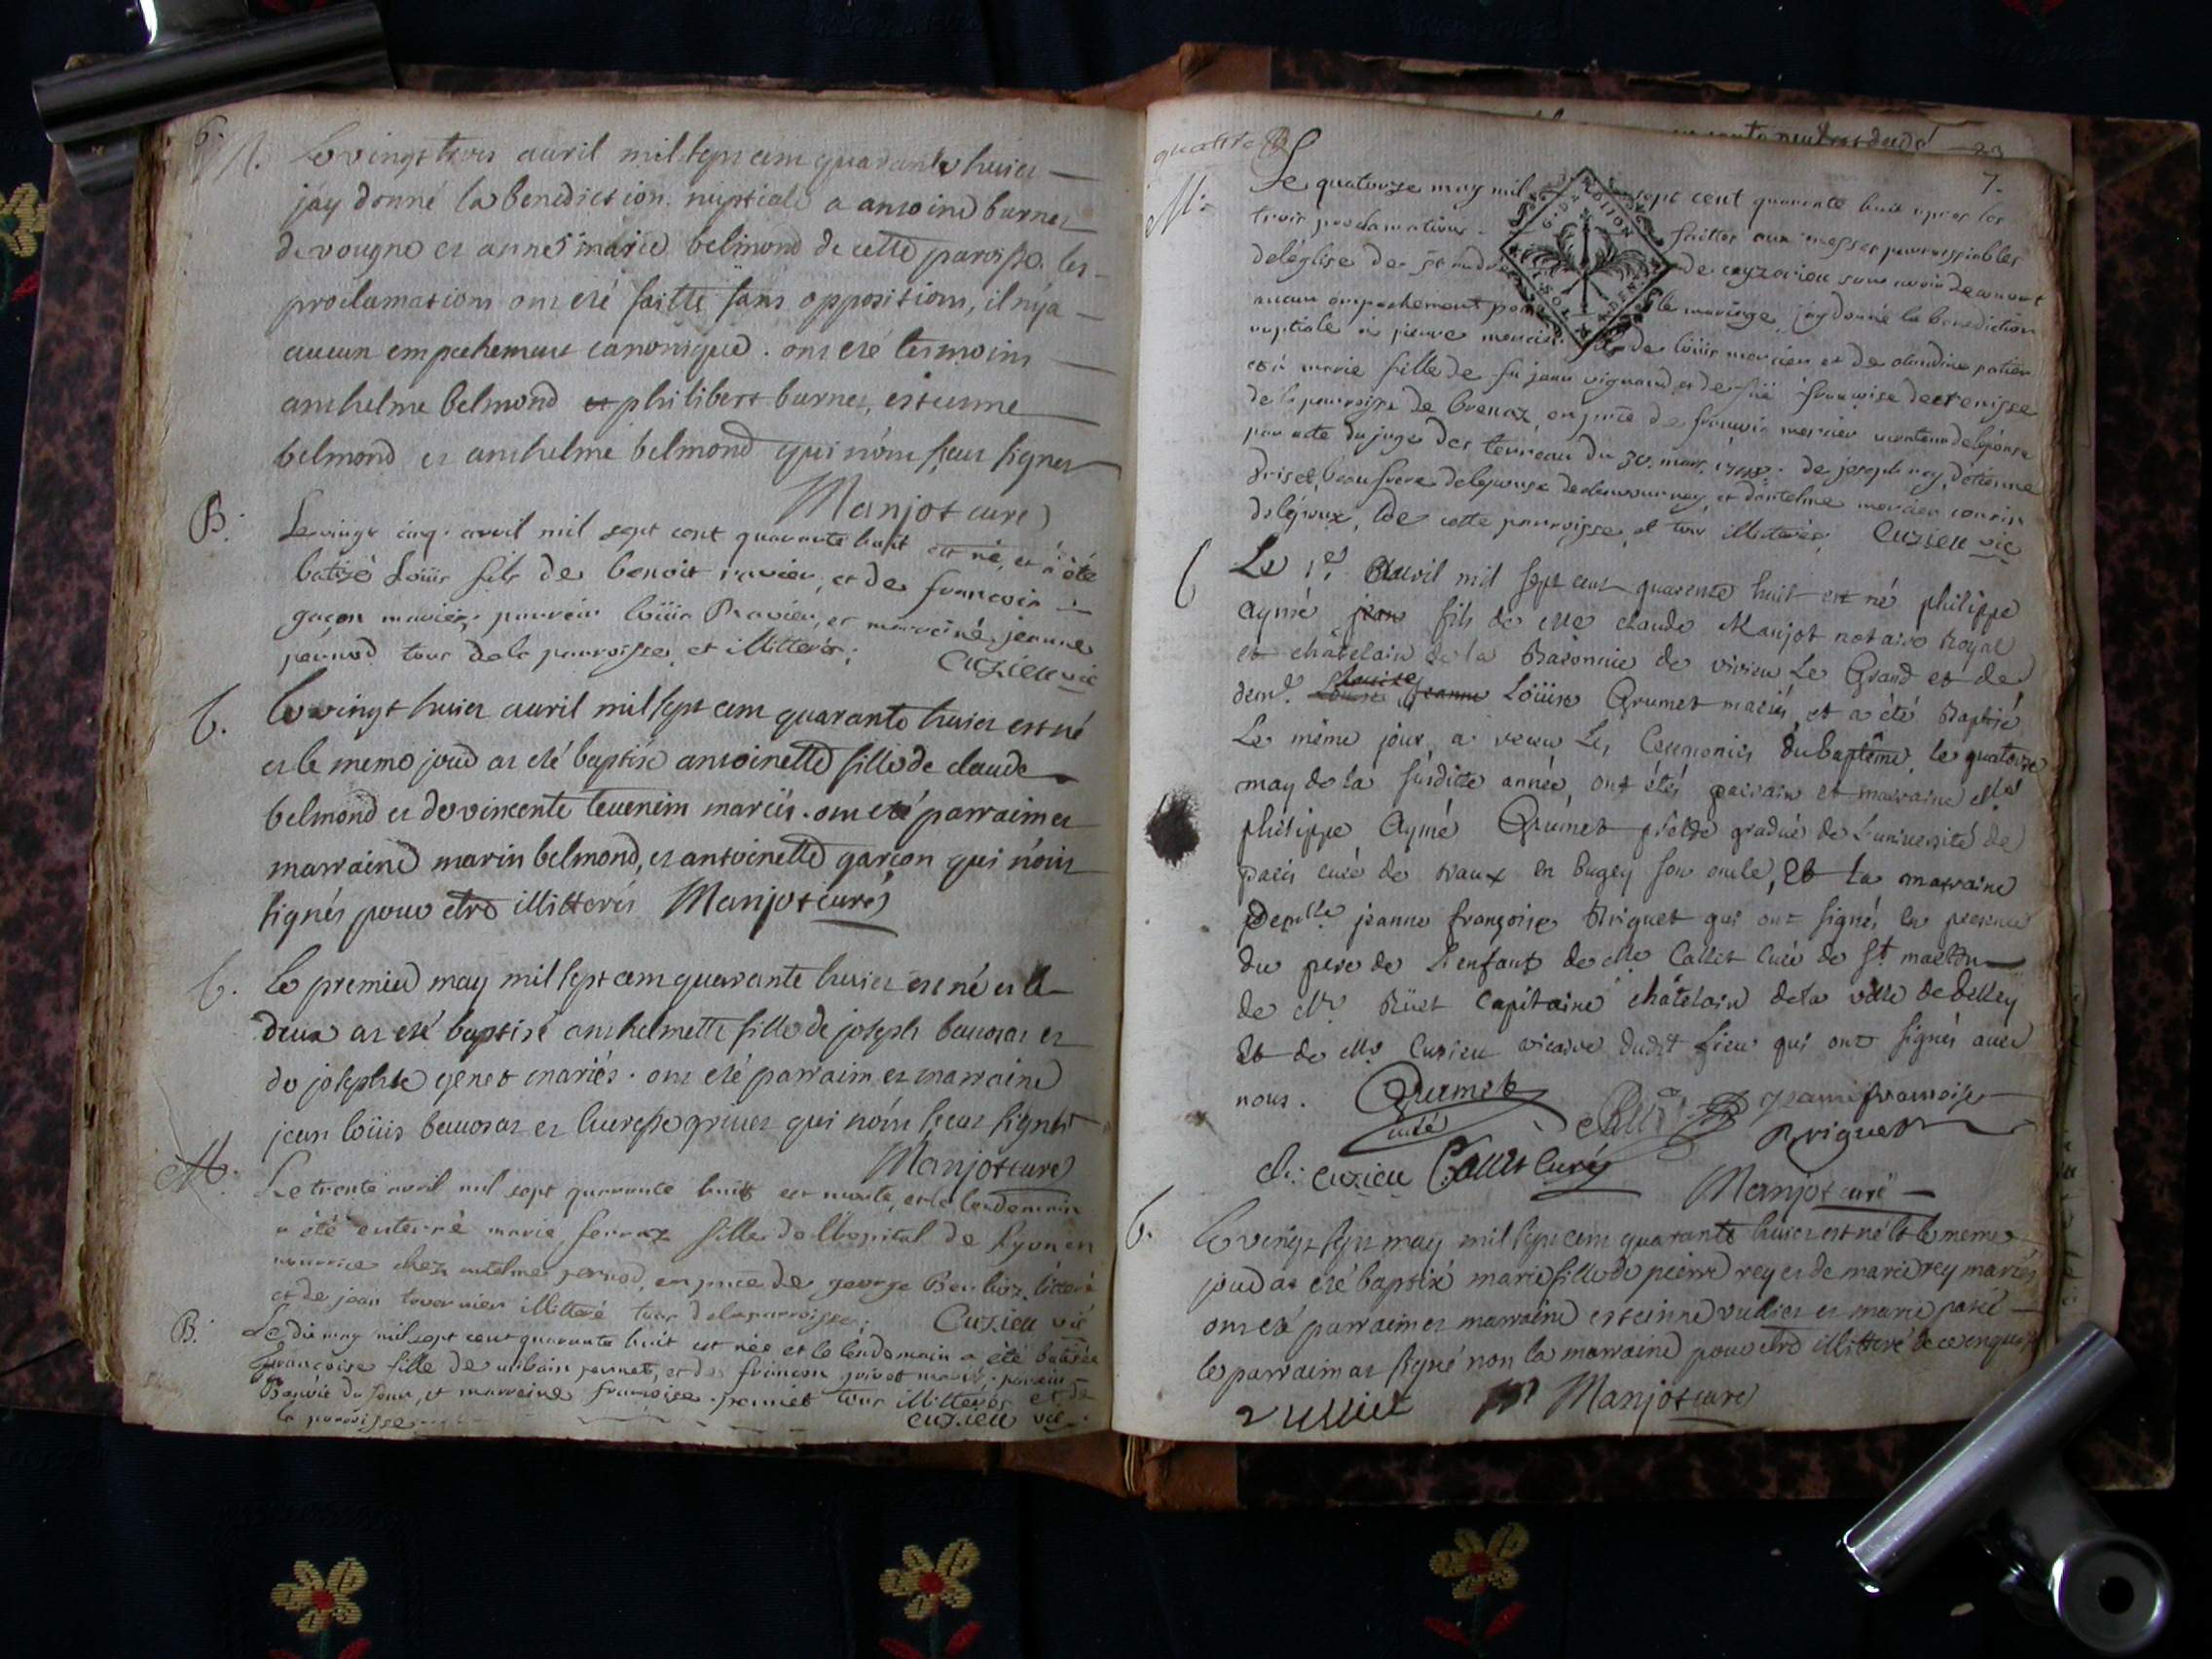 6.
M. Le vingt trois auril mil sept cent quarante huict
jay donné la benediction nuptiale a antoine burnet
de vougne et anne marie belmond de cette paroisse les
proclamations ont eté faitte sans oppositions, il n'ya
aucun empechement canonique. ont eté tesmoins
anthelme belmond et philibert burnet, estienne
belmond et anthelme belmond qui n'ont sceus signer
Manjot curé
B: Le vingt cinq avril mil sept cent quarante huit est né, et a été
batizé Loüis fils de benoit ravier, et de francoise
garçon mariés; parrain loüis Ravier, et marraine jeanne
pernod tous de la parroisse et illitterés; Cuzieu vic
b. Le vingt huict auril mil sept cent quarante huict est né
et le meme jour at eté baptisé antoinette fille de claude
belmond et de vincente teuenin mariés. ont eté parraim et
marraine marin belmond, et antoinette garçon qui n'ont
signés pour etre illitterés Manjot curé
b. Le premier may mil sept cent quarante huict est né et le
deux at eté baptisé anthelmette fille de joseph
de josephte genet mariés. ont eté parraim et marraine
jean loüis et qui n'ont sceus signer
Manjot curé
M: Le trente avril mil sept quarante huitt est morte, et le lendemain
a été enterré marie ferraz fille de l'hopital de Lyon en
nourrice chez antelme pernod, en pnce de george
et de jean tavernier illitteré tous de la parroisse; Cuzieu vic
B: Le dix may mil sept cent quarante huit est née et le lendemain a été batizée
françoise fille de urbain et de
et marraine francoise tous illitterés et de
la parroisse Cuzieu vic
quatre
7.
M: Le quatorze may mil sept cent quarante huit apres les
trois proclamations faittes aux messes parroissiales
de léglise de st andré de ceyzerieu sans avoir decouvert
aucun empechement pour le mariage, jay donné la benediction
nuptiale à pierre mercier fils de loüis mercier et de claudine
et à marie fille de fu jean vignand et de füe françoise
de la parroisse de brenaz, en pnce de francois mercier
par acte du juge des terreau du 30. mars 1748. de joseph rey, d'etienne
beau frere de lepouse et d'antelme mercier cousin
de lépoux, de cette parroisse, et tous illitterés; Cuzieu vic
b Le 1er Auril mil sept cent quarente huit est né philippe
Aymé jean fils de Me claude Manjot notaire Royal
et châtelain de la Baronnie de virieu Le Grand et de
demlle Loüise Grumet mariés, et a été Baptisé
Le même jour, a receu Les Ceremonies du baptême, le quatorze
may de la susditte année, ont étés parrain et marraine Me
philippe Aymé Grumet prêtre gradué de L'université de
paris curé de vaux en bugey son oncle, Et La marraine
Demlle jeanne françoise Briguet qui ont signés en presence
du pere de L'enfant de Me Callet Curé de St martin
de Mr Rüet Capitaine châtelain de la ville de belley
Et de Me Cuzieu vicaire dudit Lieu qui ont signés avec
nous. Grumet jeanne francoise
curé Briguet
Cuzieu Callet Curé
Manjot curé
b. Le vingt sept may mil sept cent quarante huict est né et le meme
jour at eté baptisé marie fille de pierre rey et de marie rey mariés
ont eté parraim et marraine estienne vulliet et marie
le parraim at signé non la marraine pour etre illitteré de ce enquise
vulliet Manjot curé